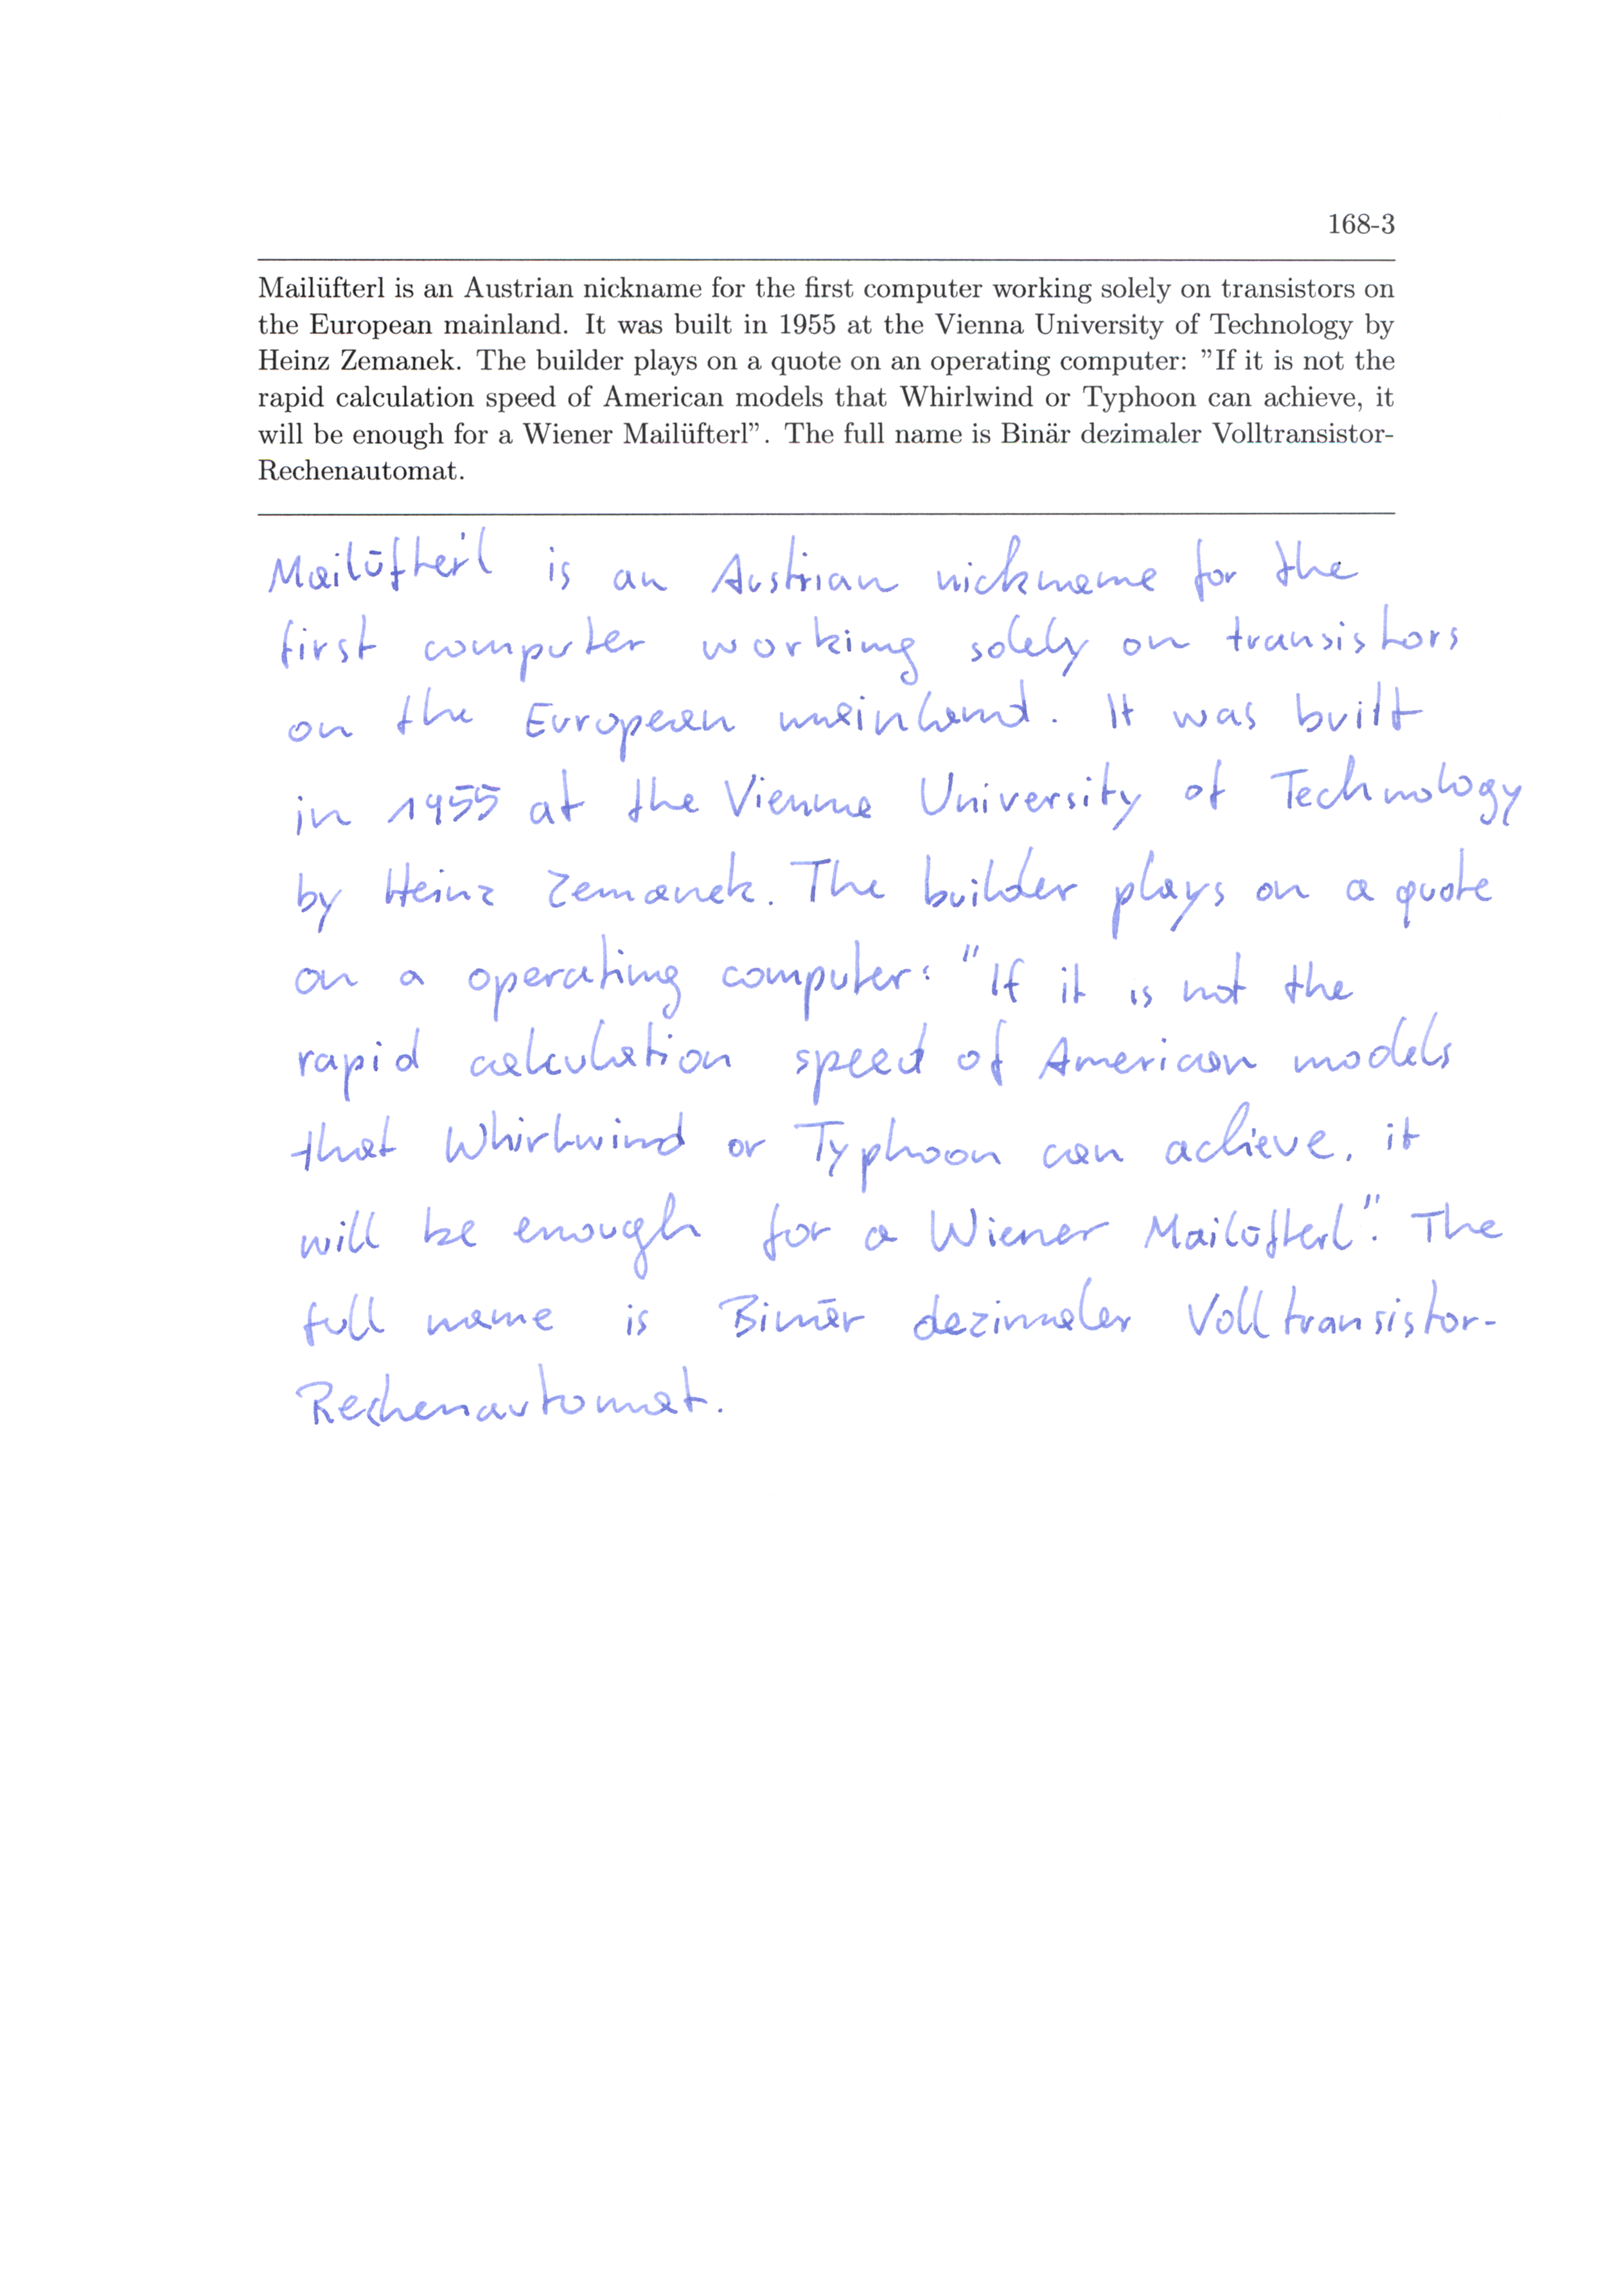 168-3
Mailüfterl is an Austrian nickname for the first computer working solely on transistors on
the European mainland. It was built in 1955 at the Vienna University of Technology by
Heinz Zemanek. The builder plays on a quote on an operating computer: ”If it is not the
rapid calculation speed of American models that Whirlwind or Typhoon can achieve, it
will be enough for a Wiener Mailüfterl”. The full name is Binär dezimaler Volltransistor-
Rechenautomat.
Mailüfterl is an Austrian nickname for the
first computer working solely on transistors
on the European mainland. It was built
in 1955 at the Vienna University of Technology
by Heinz Zemanek. The builder plays on a quote
on a operating computer: "If it is not the
rapid calculation speed of American models
that Whirlwind or Typhoon can achieve, it
will be enough for a Wiener Mailüfterl". The
full name is Binär dezimaler Volltransistor-
Rechenautomat.